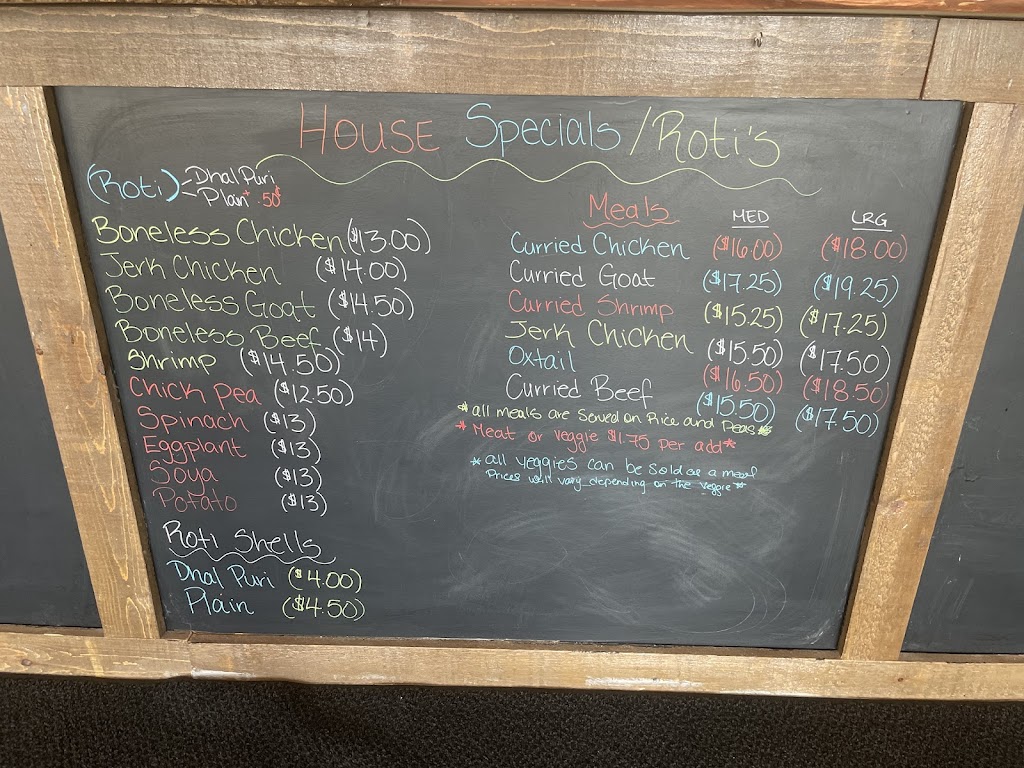 House Specials / Roti's
(Roti) - Dhal Puri
- Plain + .50¢
Boneless Chicken ($13.00)
Jerk Chicken ($14.00)
Boneless Goat ($14.50)
Boneless Beef ($14)
Shrimp ($14.50)
Chick Pea ($12.50)
Spinach ($13)
Eggplant ($13)
Soya ($13)
Potato ($13)
Roti Shells
Dhal Puri ($4.00)
Plain ($4.50)
Meals MED LRG
Curried Chicken ($16.00) ($18.00)
Curried Goat ($17.25) ($19.25)
Curried Shrimp ($15.25) ($17.25)
Jerk Chicken ($15.50) ($17.50)
Oxtail ($16.50) ($18.50)
Curried Beef ($15.50) ($17.50)
*all meals are Served on Rice and Peas*
*Meat or veggie $1.75 per add*
*all veggies can be sold as a meal
Prices will vary depending on the veggie*